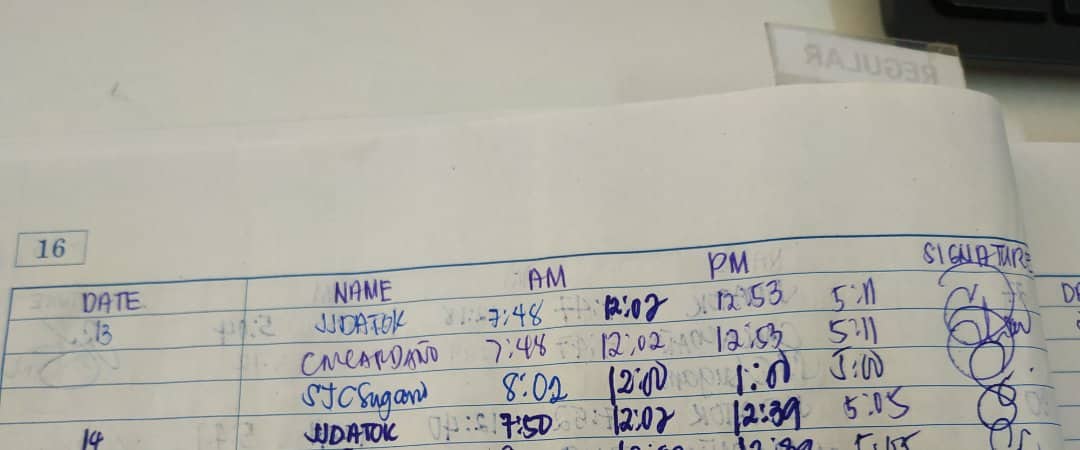 REGULAR
16
DATE NAME AM PM SIGNATURE
13 JJDATOK 7:48 12:02 12:53 5:11
7:48 12:02 12:53 5:11
8:02 12:00 1:00 5:00
14 JJDATOK 7:50 12:02 12:39 5:05